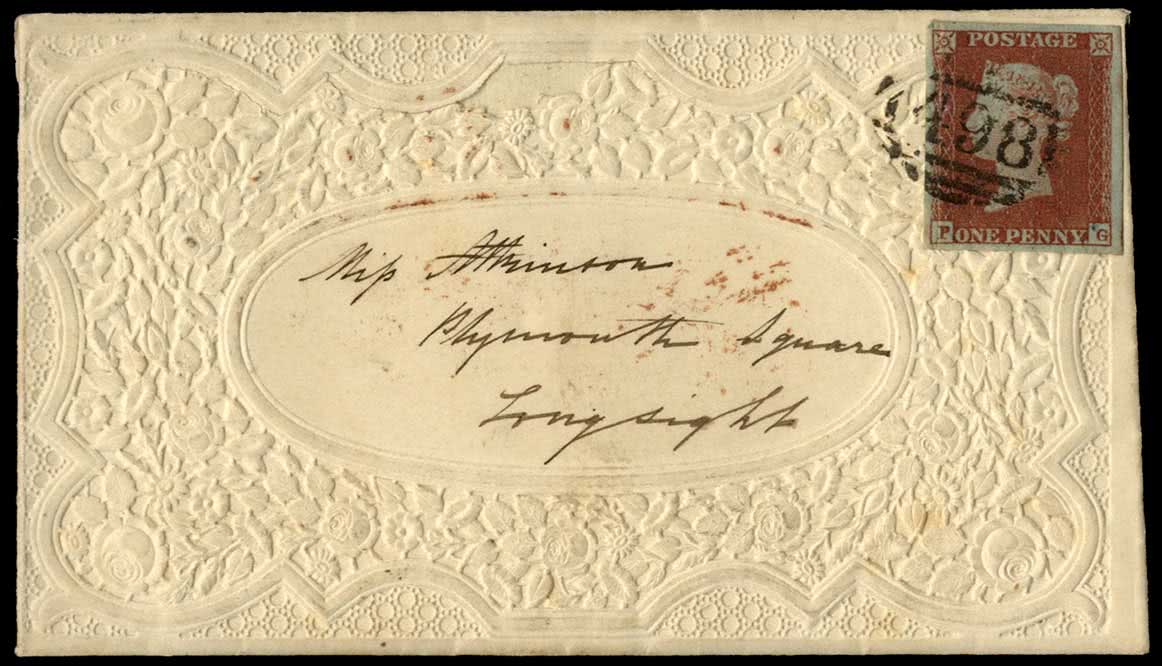 POSTAGE
498
P ONE PENNY G
Miss Atkinson
Plymouth Square
Longsight